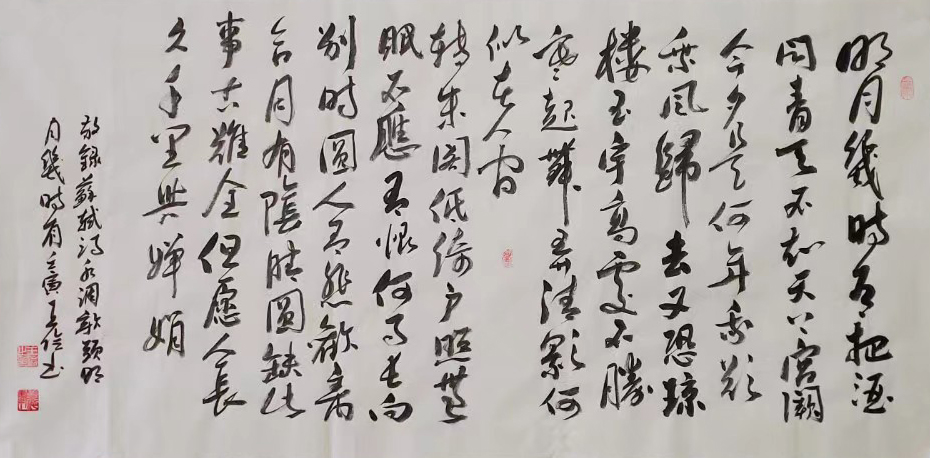 明月幾時有把酒
問青天不知天上宮闕
今夕是何年我欲
乘風歸去又恐瓊
樓玉宇高處不勝
寒起舞弄清影何
似在人間
轉朱閣低綺户照無
眠不應有恨何事長向
别時圓人有悲歡離
合月有陰晴圓缺此
事古難全但願人長
久千里共嬋娟
敬録蘇軾水調歌頭明
月幾時有壬寅王書